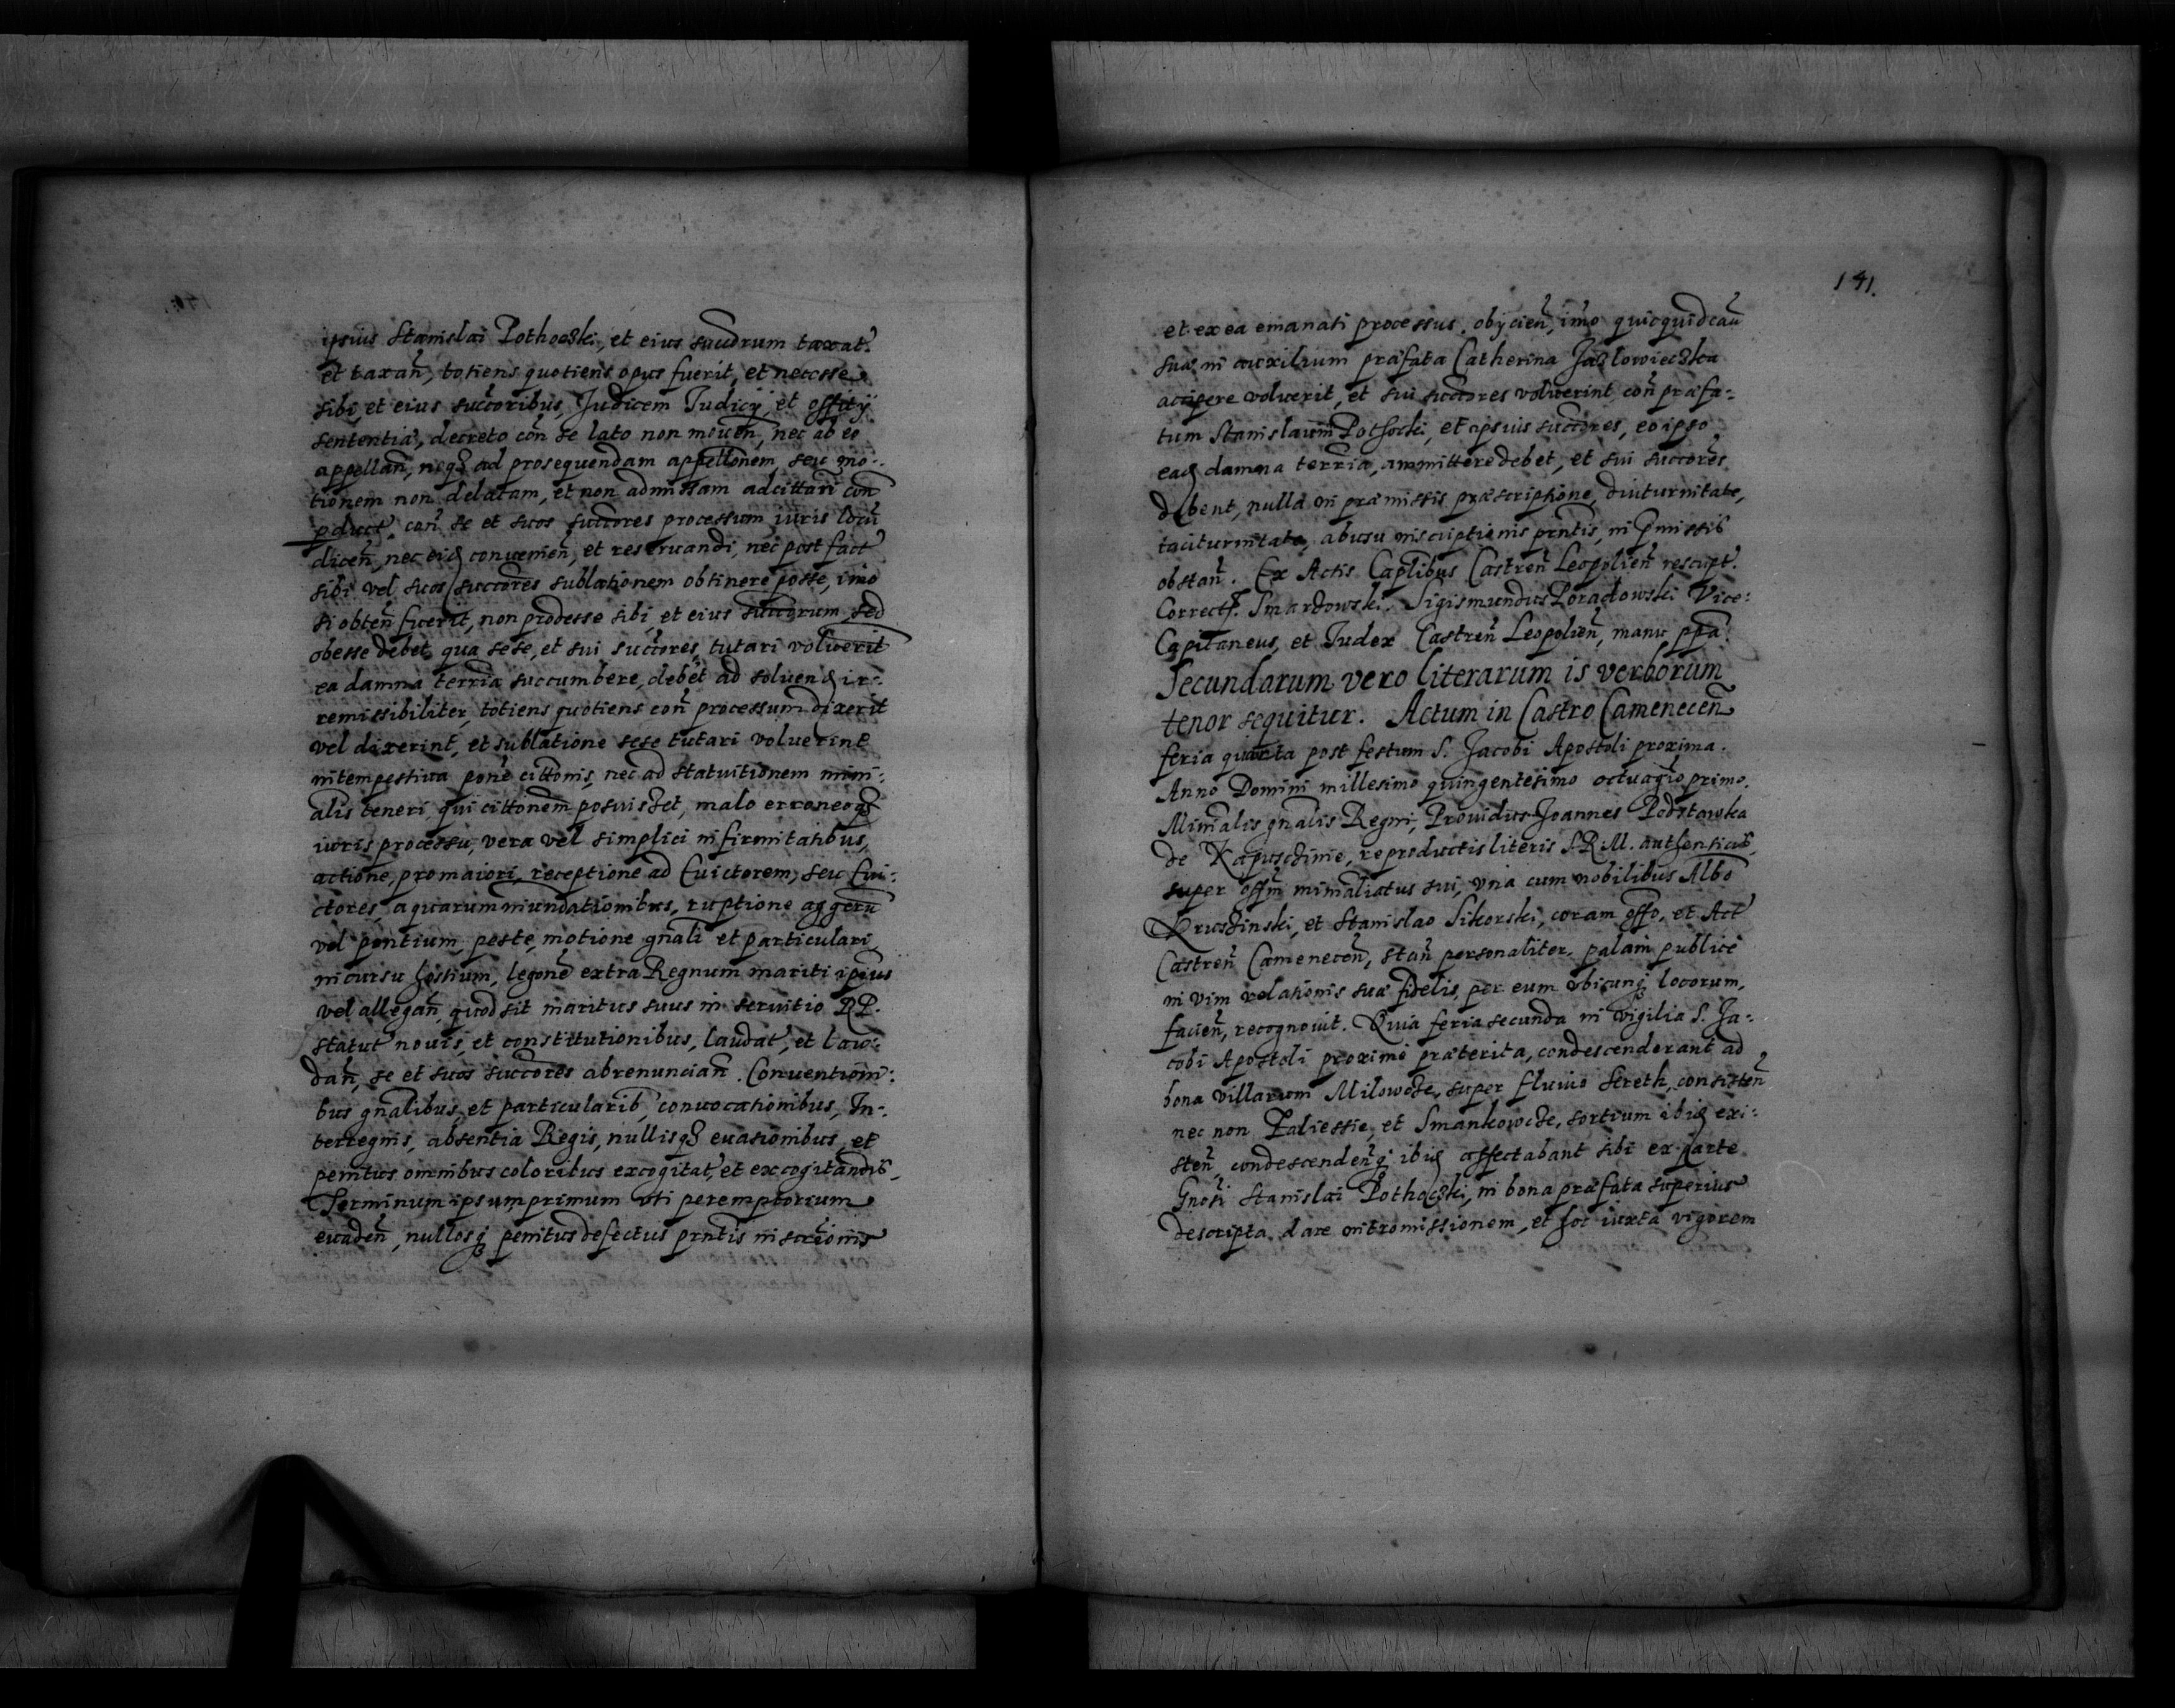 ipsius Stanislai Pothoczki, et eius succrum taxat.
et taxan, totiens quotiens opus fuerit, et necesse
sibi et eius succoribus, Judicem Judicy, et offity
sententia, decreto con se lato non mouen, nec ab eo
appellan, neq ad prosequendam appellonem, seu mo:
tionem non delatam, et non admissam adcittari con
pduct. con se et suos succores processum iuris locu
dicen, nec eid conuenien, et reseruandi, nec post fact
sibi vel suos succores sublationem obtinere posse, imo
si obten fuerit, non prodesse sibi, et eius succorum, sed
obesse debet, qua sese, et sui succores, tutari voluerit
ea damna terria succumbere, debet ad soluend ir:
remissibiliter, totiens quotiens con processum dixerit
vel dixerint, et sublatione sese tutari voluerint
intempestiua pone cittonis, nec ad statuitionem mini:
alis teneri, qui cittonem posuisset, malo erroneoq
iuris processu, vera vel simplici infirmitatibus,
actione, pro maiori, receptione ad Euictorem, seu Eui:
ctores, aquarum inundationibus, ruptione aggeru
vel pontium, peste, motione gnali et particulari,
incursu hostium, legone extra Regnum mariti ipius
vel allegan, quod sit maritus suus in seruitio RP.
statut nouis, et constitutionibus, laudat, et lau:
dan, se et suos succores abrenuncian. Conuentioni:
bus gnalibus, et particularib, conuocationibus, In:
terregnis, absentia Regis, nullisq euasionibus, et
penitus omnibus coloribus excogitat, et excogitandis,
Terminum ipsum primum uti peremptorium
euaden, nullosq penitus defectus prntis inscrionis
141.
et ex ea emanati processus, obycien, imo quicquid cau
suæ in auxilium præfata Catherina Jazlowieczka
accipere voluerit, et sui succores voluerint, con præfa:
tum Stanislaum Pothocki, et ipsius succores, eo ipso
ead damna terria, ammittere debet, et sui succores
debent, nulla in præmissis præscriptione, diuturnitate,
taciturnitate, abusu inscriptionis prntis, in pmissis
obstan. Ex Actis Caplibus Castren Leopolien rescript.
Correct. Smardowski. Sigismundus Poradowski Vice:
Capitaneus, et Judex Castren Leopolien, manu ppa.
Secundarum vero literarum is verborum
tenor sequitur. Actum in Castro Camenecen
feria quarta post festum S. Jacobi Apostoli proxima.
Anno Domini millesimo quingentesimo octuagio primo.
Minialis gnalis Regni, Prouidus Joannes Podstawka
de Kapusczinie, reproductis literis S.R.M. authenticis,
super offm minialiatus sui, vna cum nobilibus Albo
Kruszinski, et Stanislao Sikorski, coram offo, et Act
Castren Camenecen, stan personaliter, palam publice
in vim relationis suæ fidelis, per eum vbicunq locorum,
facien, recognouit. Quia feria secunda in vigilia S. Ja:
cobi Apostoli proxime præterita, condescenderant ad
bona villarum Milowcze, super fluuio Sereth, consisten
nec non Zaliessie, et Smankowcze, sortium ibid exi:
sten, condescendenq ibid affectabant sibi ex parte
Gnosi Stanislai Pothoczki, in bona præfata superius
descripta dare intromissionem, et hoc iuxta vigorem